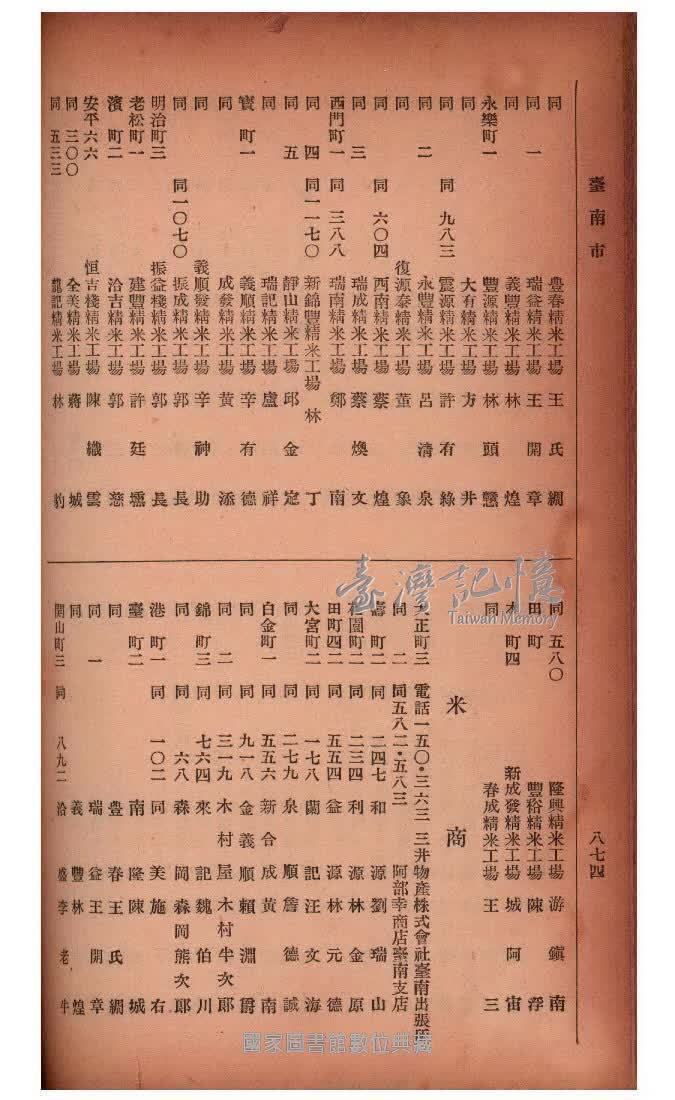 臺南市
八七四
同 豊春精米工場 王氏綢
同 一 瑞益精米工場 王開章
同 義豐精米工場 林煌
永樂町一 豐源精米工場 林頭戇
同 大有精米工場 方井
同 同 九八三 震源精米工場 許有綠
同 二 永豐精米工場 呂清泉
同 復源泰精米工場 董象
同 同 六〇四 西南精米工場 蔡煌
同 三 瑞成精米工場 蔡煥文
西門町一 同 三八八 瑞南精米工場 鄭南
同 四 同一一七〇 新錦豐精米工場 林丁
同 五 靜山精米工場 邱金定
同 瑞記精米工場 盧祥
寳町一 義順精米工場 辛有德
同 成發精米工場 黃添
同 義順發精米工場 辛神助
同 同一〇七〇 振成精米工場 郭長
明治町三 振益棧精米工場 郭長
老松町一 建豐精米工場 許廷壎
濱町二 洽吉精米工場 郭慈
安平六六 恒吉棧精米工場 陳織雲
同 三〇〇 全美精米工場 蔣城
同 五三三 龍記精米工場 林豹
同 五八〇 隆興精米工場 游鎭南
田町 豐裕精米工場 陳浮
本町四 新成發精米工場 城阿宙
同 春成精米工場 王三
米商
大正町三 電話一五〇・三六三 三井物產株式會社臺南出張所
同 二 同五八二・五八三 阿部幸商店臺南支店
壽町二 同 二四七 和源 劉瑞山
桂園町二 同 二三四 利源 林金原
田町四二 同 五五四 益源 林元德
大宮町二 同 一七八 蘭記 汪文海
同 同 二七九 泉順 詹德誠
白金町一 同 五五六 新合成 黃南
同 同 九一八 金義順 賴淵爵
同 二 同 三一九 木村屋 木村半次郎
錦町三 同 七六四 來記 魏伯川
同 同 六八 森岡 森岡熊次郎
港町一 同 一〇二 同美 施右
臺町二 南隆 陳城
同 豊春 王氏綢
同 一 瑞益 王開章
同 義豐 林煌
開山町三 同 八九二 洽盛 李老牛
臺灣記憶
Taiwan Memory
國家圖書館數位典藏